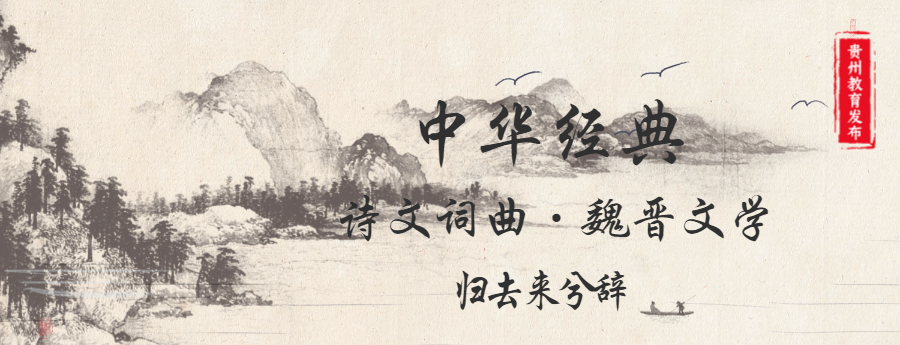 中华经典
诗文词曲·魏晋文学
归去来兮辞
贵州教育发布